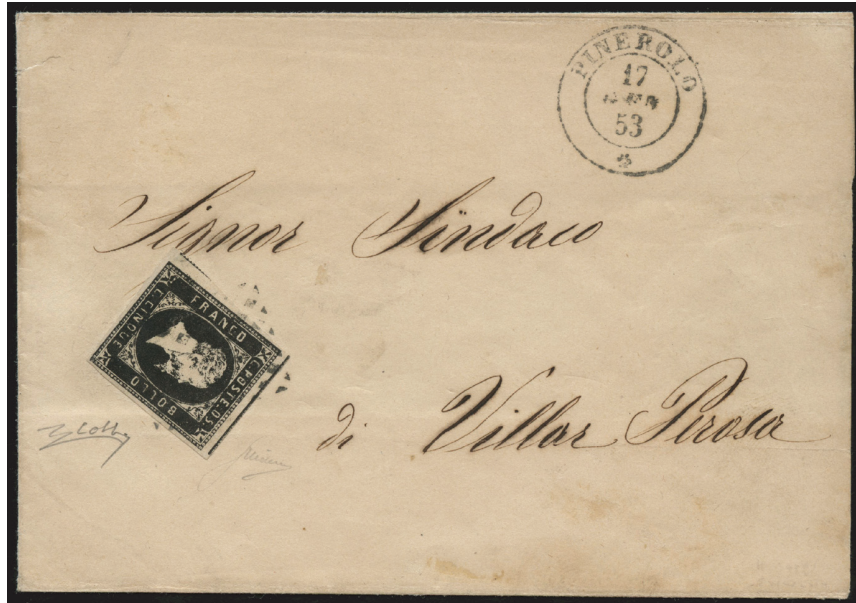 PINEROLO
17
53
Signor Sindaco
FRANCO
C. POSTE. 05
BOLLO
C. CINQUE
di Villar Perosa